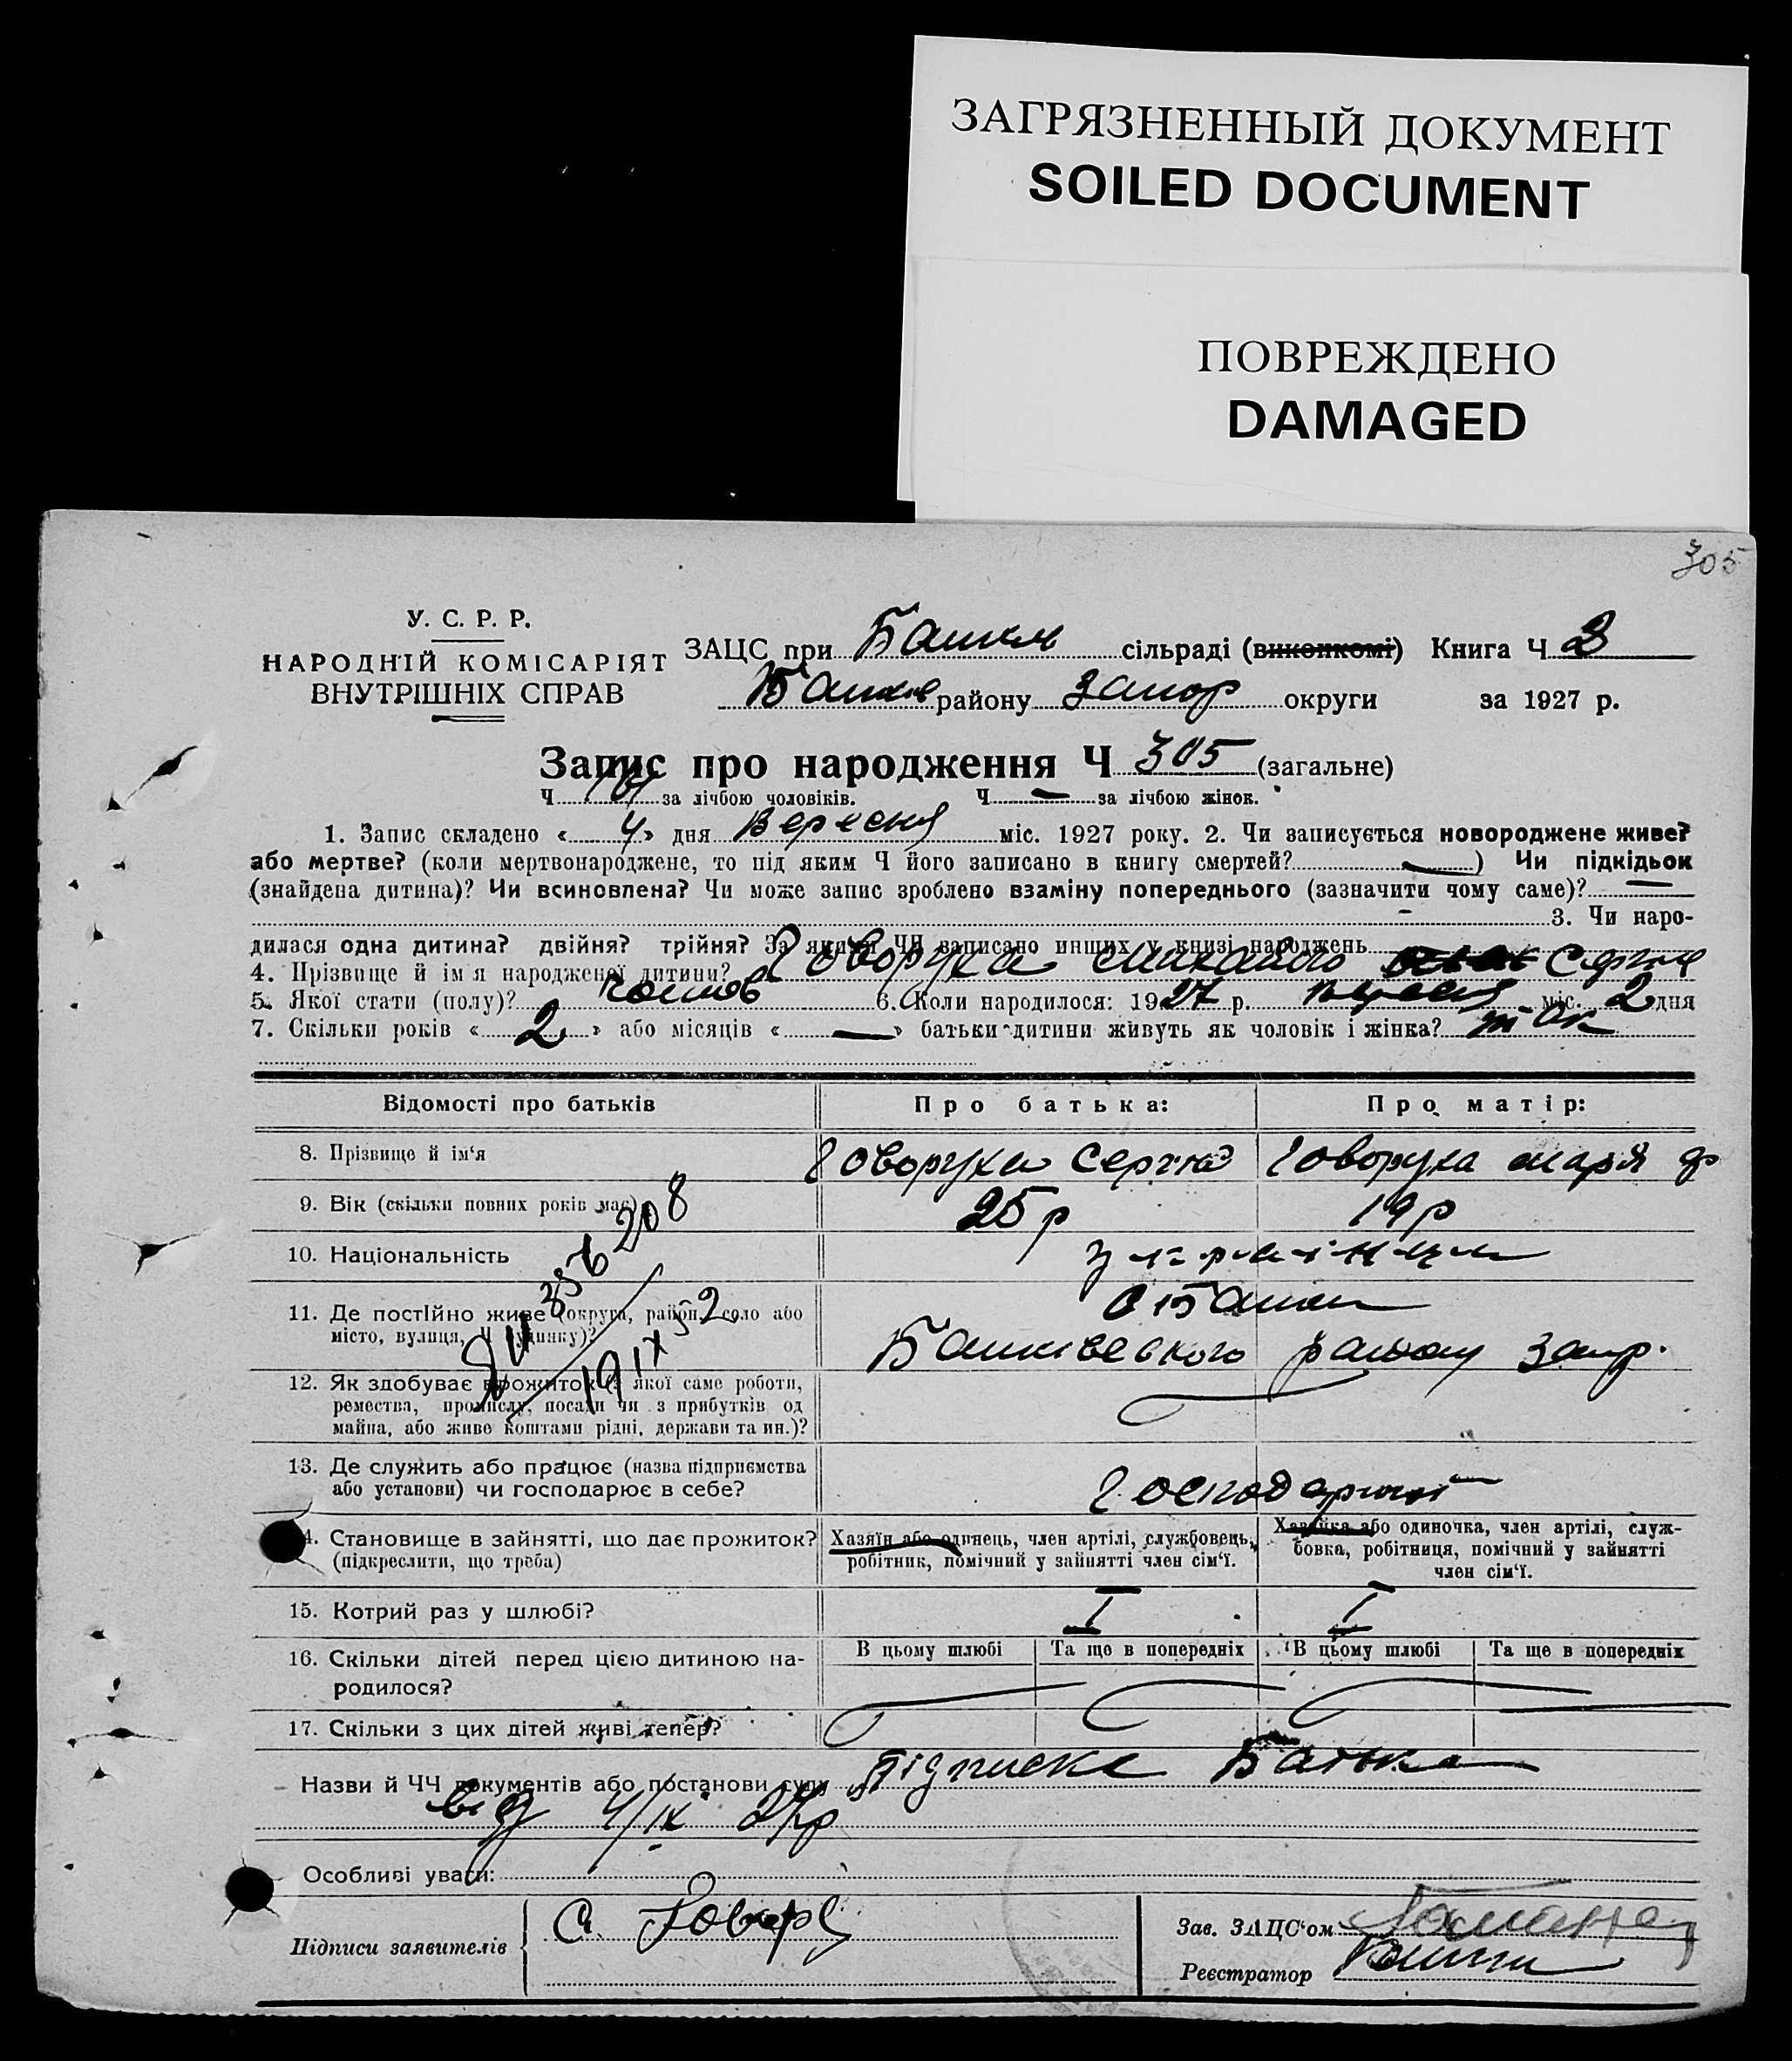 ЗАГРЯЗНЕННЫЙ ДОКУМЕНТ
SOILED DOCUMENT
ПОВРЕЖДЕНО
DAMAGED
305
У. С. Р. Р.
НАРОДНІЙ КОМІСАРІЯТ
ВНУТРІШНІХ СПРАВ
ЗАЦС при сільраді (виконкомі) Книга Ч 3
району Запор округи за 1927 р.
Запис про народження Ч 305 (загальне)
Ч за лічбою чоловіків. Ч — за лічбою жінок.
1. Запис складено « 4 » дня Вересня міс. 1927 року. 2. Чи записується новороджене живе?
або мертве? (коли мертвонароджене, то під яким Ч його записано в книгу смертей? —) Чи підкідьок
(знайдена дитина)? Чи всиновлена? Чи може запис зроблено взаміну попереднього (зазначити чому саме)? —
3. Чи наро-
дилася одна дитина? двійня? трійня? За якими ЧЧ записано инших у книзі народжень
4. Прізвище й ім'я народженої дитини? Говоруха Михайло
5. Якої стати (полу)? 6. Коли народилося: 1927 р. вересня міс. 2 дня
7. Скільки років « 2 » або місяців « — » батьки дитини живуть як чоловік і жінка? так
Відомості про батьків Про батька: Про матір:
8. Прізвище й ім'я Говоруха Сергій Говоруха Марія
9. Вік (скільки повних років має) 25 р 19 р
10. Національність українці
11. Де постійно живе (округа, район, село або
місто, вулиця, Ч будинку)?
району Запор.
12. Як здобуває прожиток (з якої саме роботи,
ремества, промислу, посади чи з прибутків од
майна, або живе коштами рідні, держави та ин.)?
13. Де служить або працює (назва підприємства
або установи) чи господарює в себе?
14. Становище в зайнятті, що дає прожиток?
(підкреслити, що треба)
Хазяїн або одинець, член артілі, службовець,
робітник, помічний у зайнятті член сім'ї.
Хазяйка або одиночка, член артілі, служ-
бовка, робітниця, помічний у зайнятті
член сім'ї.
15. Котрий раз у шлюбі? I I
16. Скільки дітей перед цією дитиною на-
родилося?
В цьому шлюбі Та ще в попередніх В цьому шлюбі Та ще в попередніх
17. Скільки з цих дітей живі тепер?
Назви й ЧЧ документів або постанови суду Підписка Батька
від 4/IX 27р
Особливі уваги:
Підписи заявителів
Зав. ЗАЦС'ом
Реєстратор